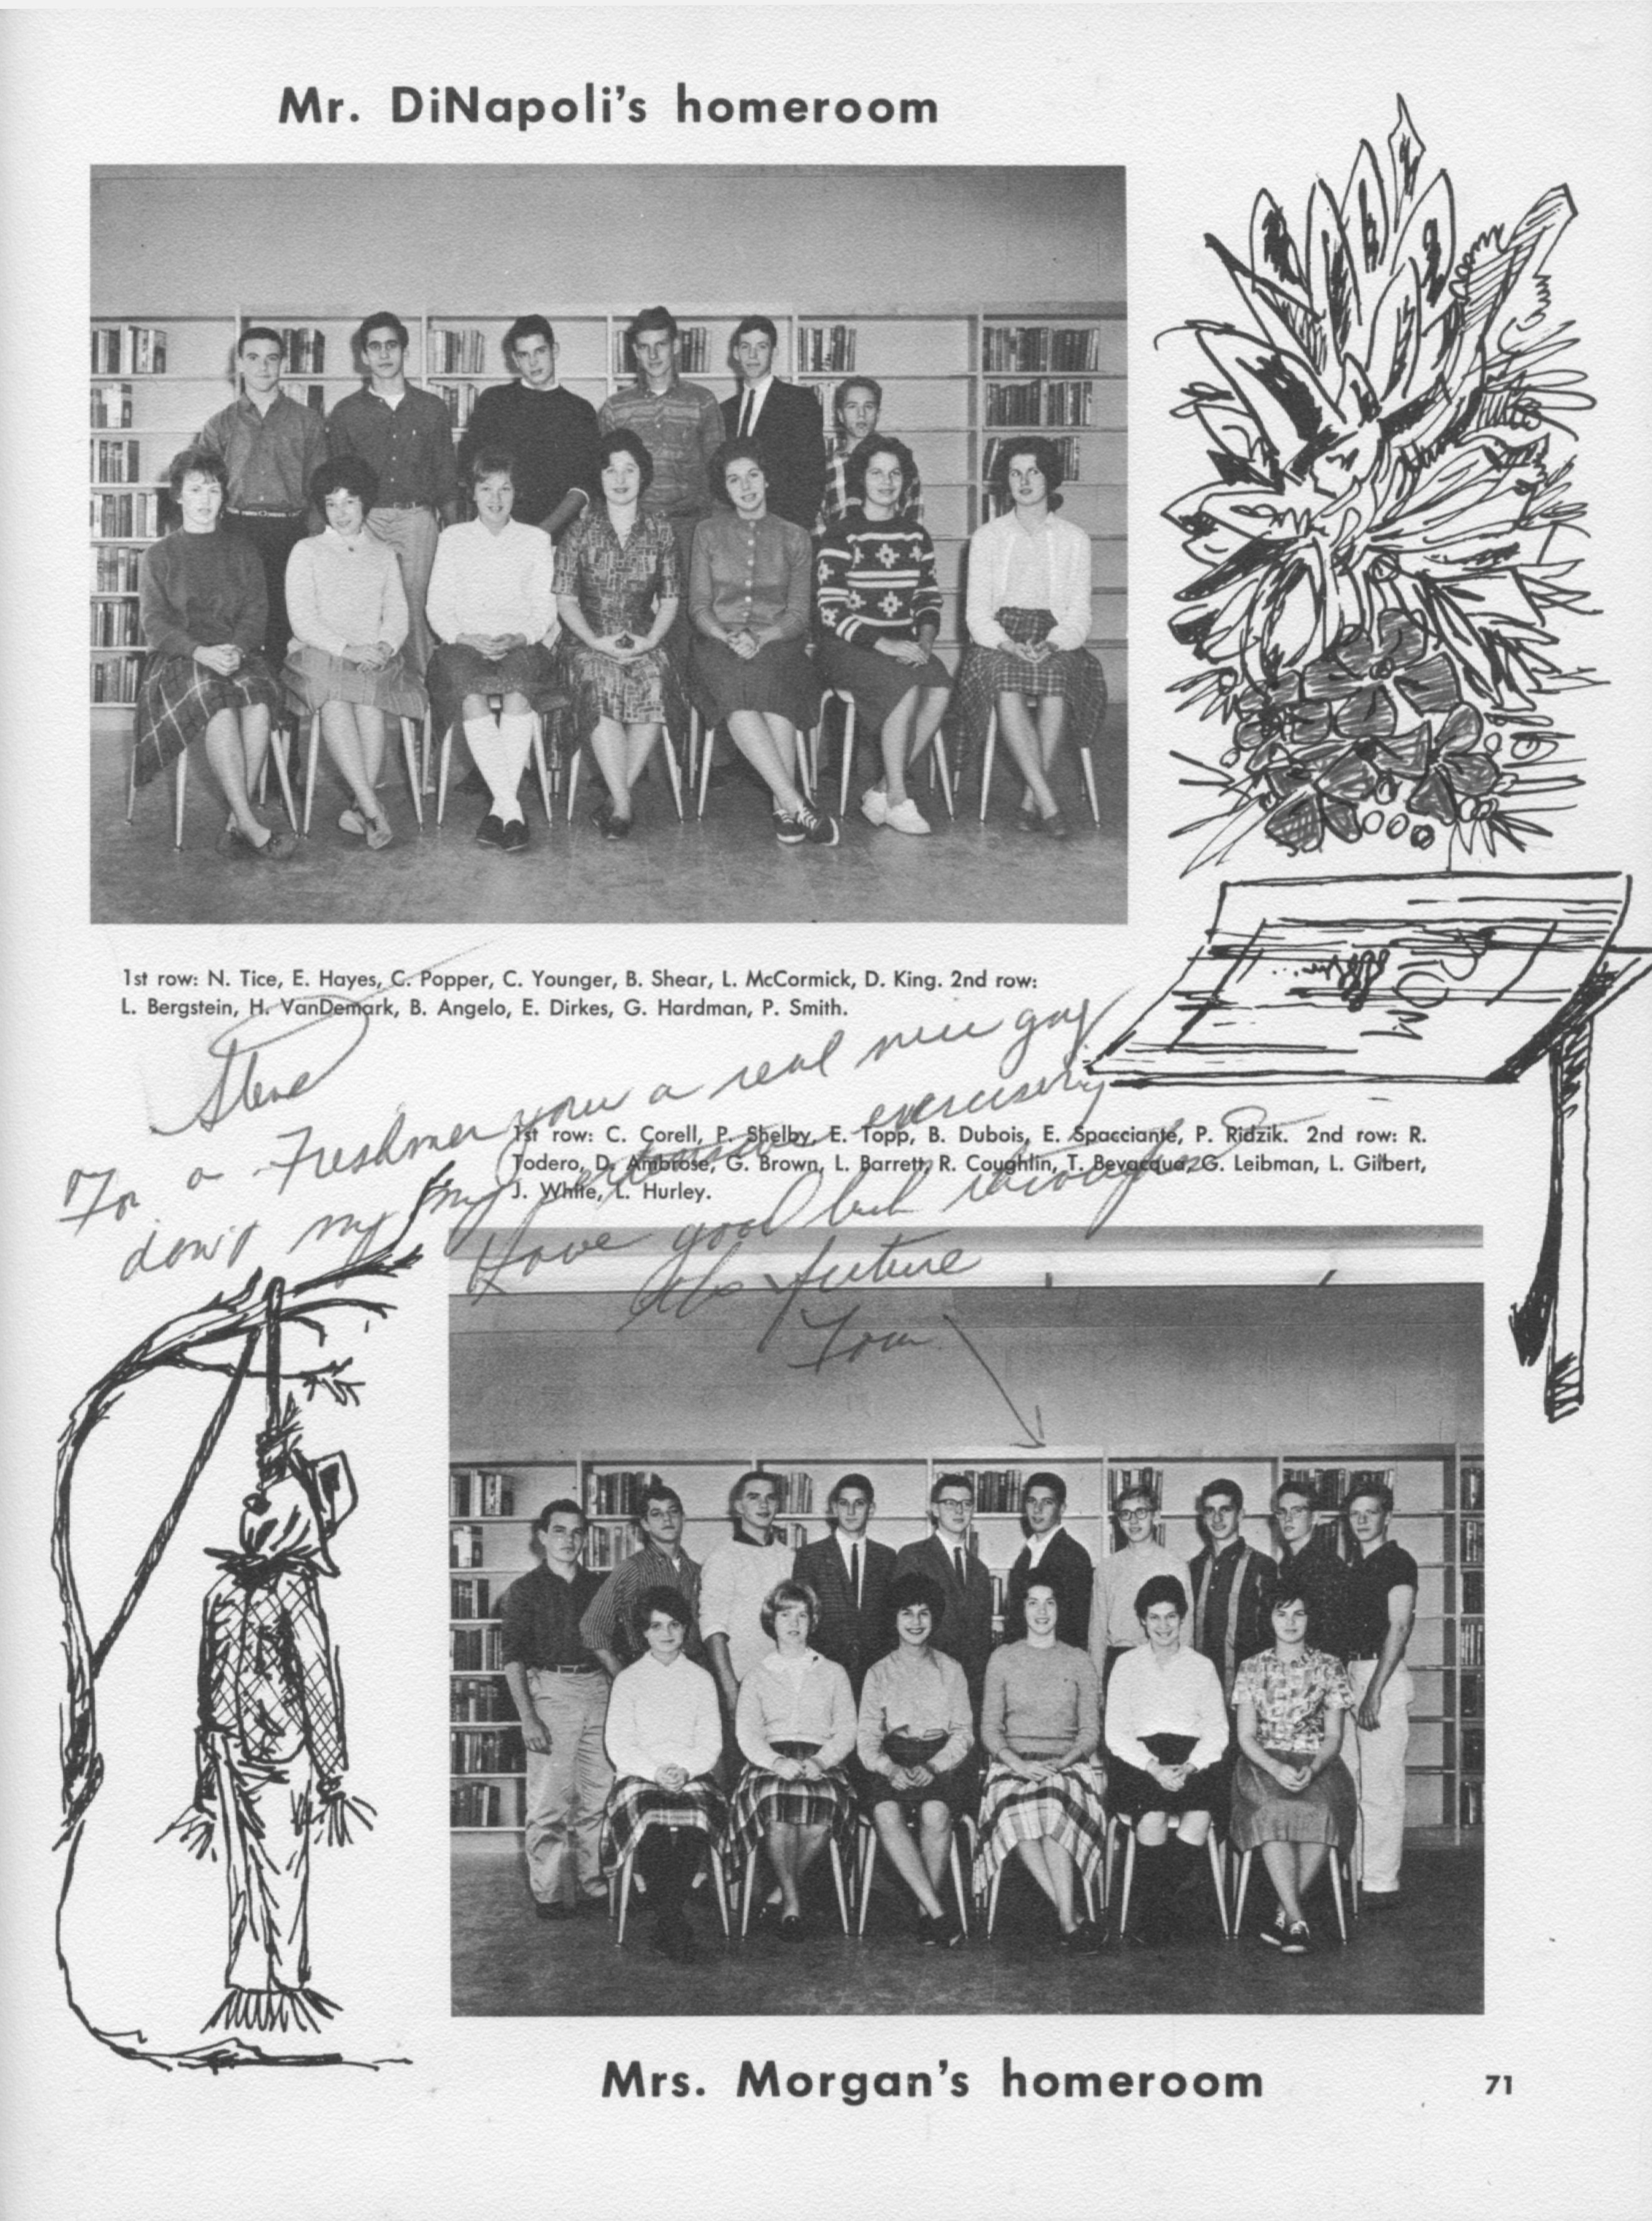 Mr. DiNapoli's homeroom
1st row: N. Tice, E. Hayes, C. Popper, C. Younger, B. Shear, L. McCormick, D. King. 2nd row:
L. Bergstein, H. VanDemark, B. Angelo, E. Dirkes, G. Hardman, P. Smith.
Steve
For a Freshmen your a real nice guy
don't my my extensive exercising
Have good luck through
the future
Tom
1st row: C. Corell, P. Shelby, E. Topp, B. Dubois, E. Spacciante, P. Ridzik. 2nd row: R.
Todero, D. Ambrose, G. Brown, L. Barrett, R. Coughlin, T. Bevacqua, G. Leibman, L. Gilbert,
J. White, L. Hurley.
Mrs. Morgan's homeroom
71